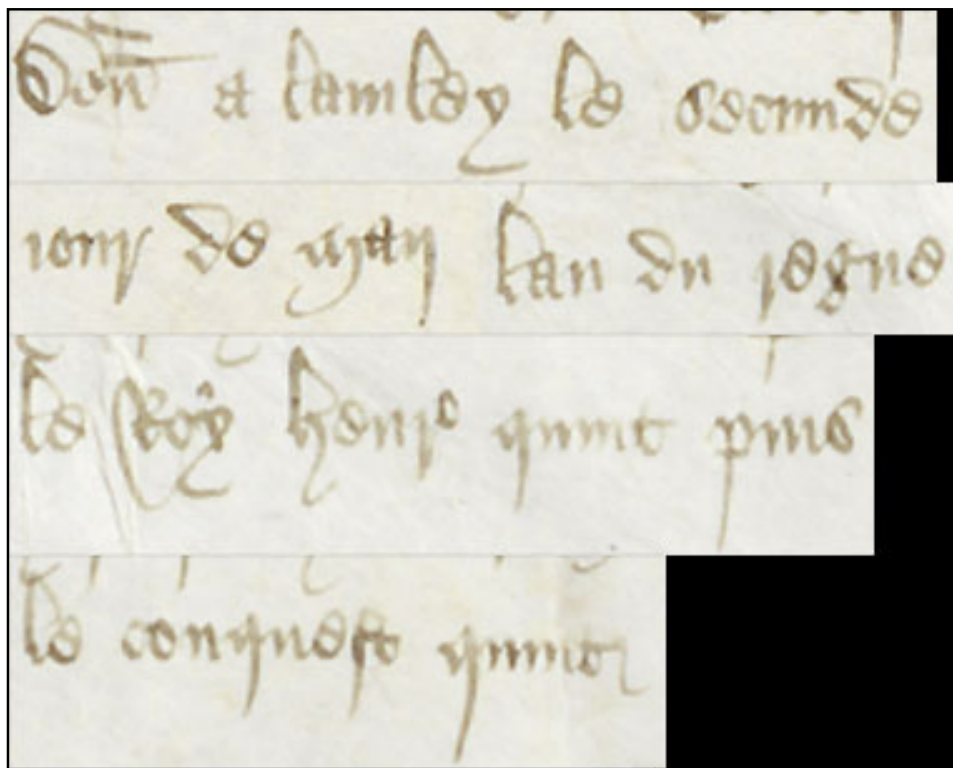 Don a lamley le secunde
iour de Maii lan du regne
le Roy henrc quint puis
le conquest quint